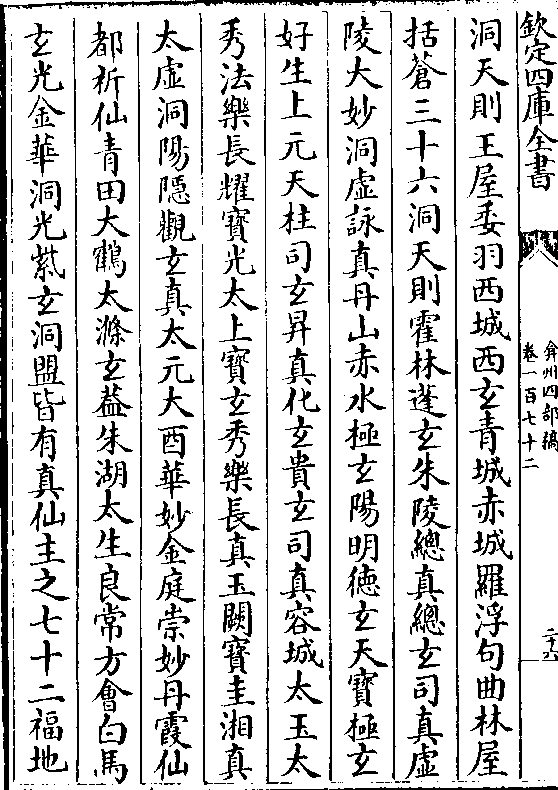 欽定四庫全書
弇州四部稿
卷一百七十二
二十六
洞天則王屋委羽西城西玄青城赤城羅浮句曲林屋
括蒼三十六洞天則霍林蓬玄朱陵總真總玄司真虛
陵大妙洞虛詠真丹山赤水極玄陽明德玄天寶極玄
好生上元天柱司玄昇真化玄貴玄司真容城太玉太
秀法樂長耀寶光太上寶玄秀樂長真玉闕寶圭湘真
太虛洞陽隱觀玄真太元大酉華妙金庭崇妙丹霞仙
都祈仙青田大鶴太滌玄葢朱湖太生良常方會白馬
玄光金華洞光紫玄洞盟皆有真仙主之七十二福地